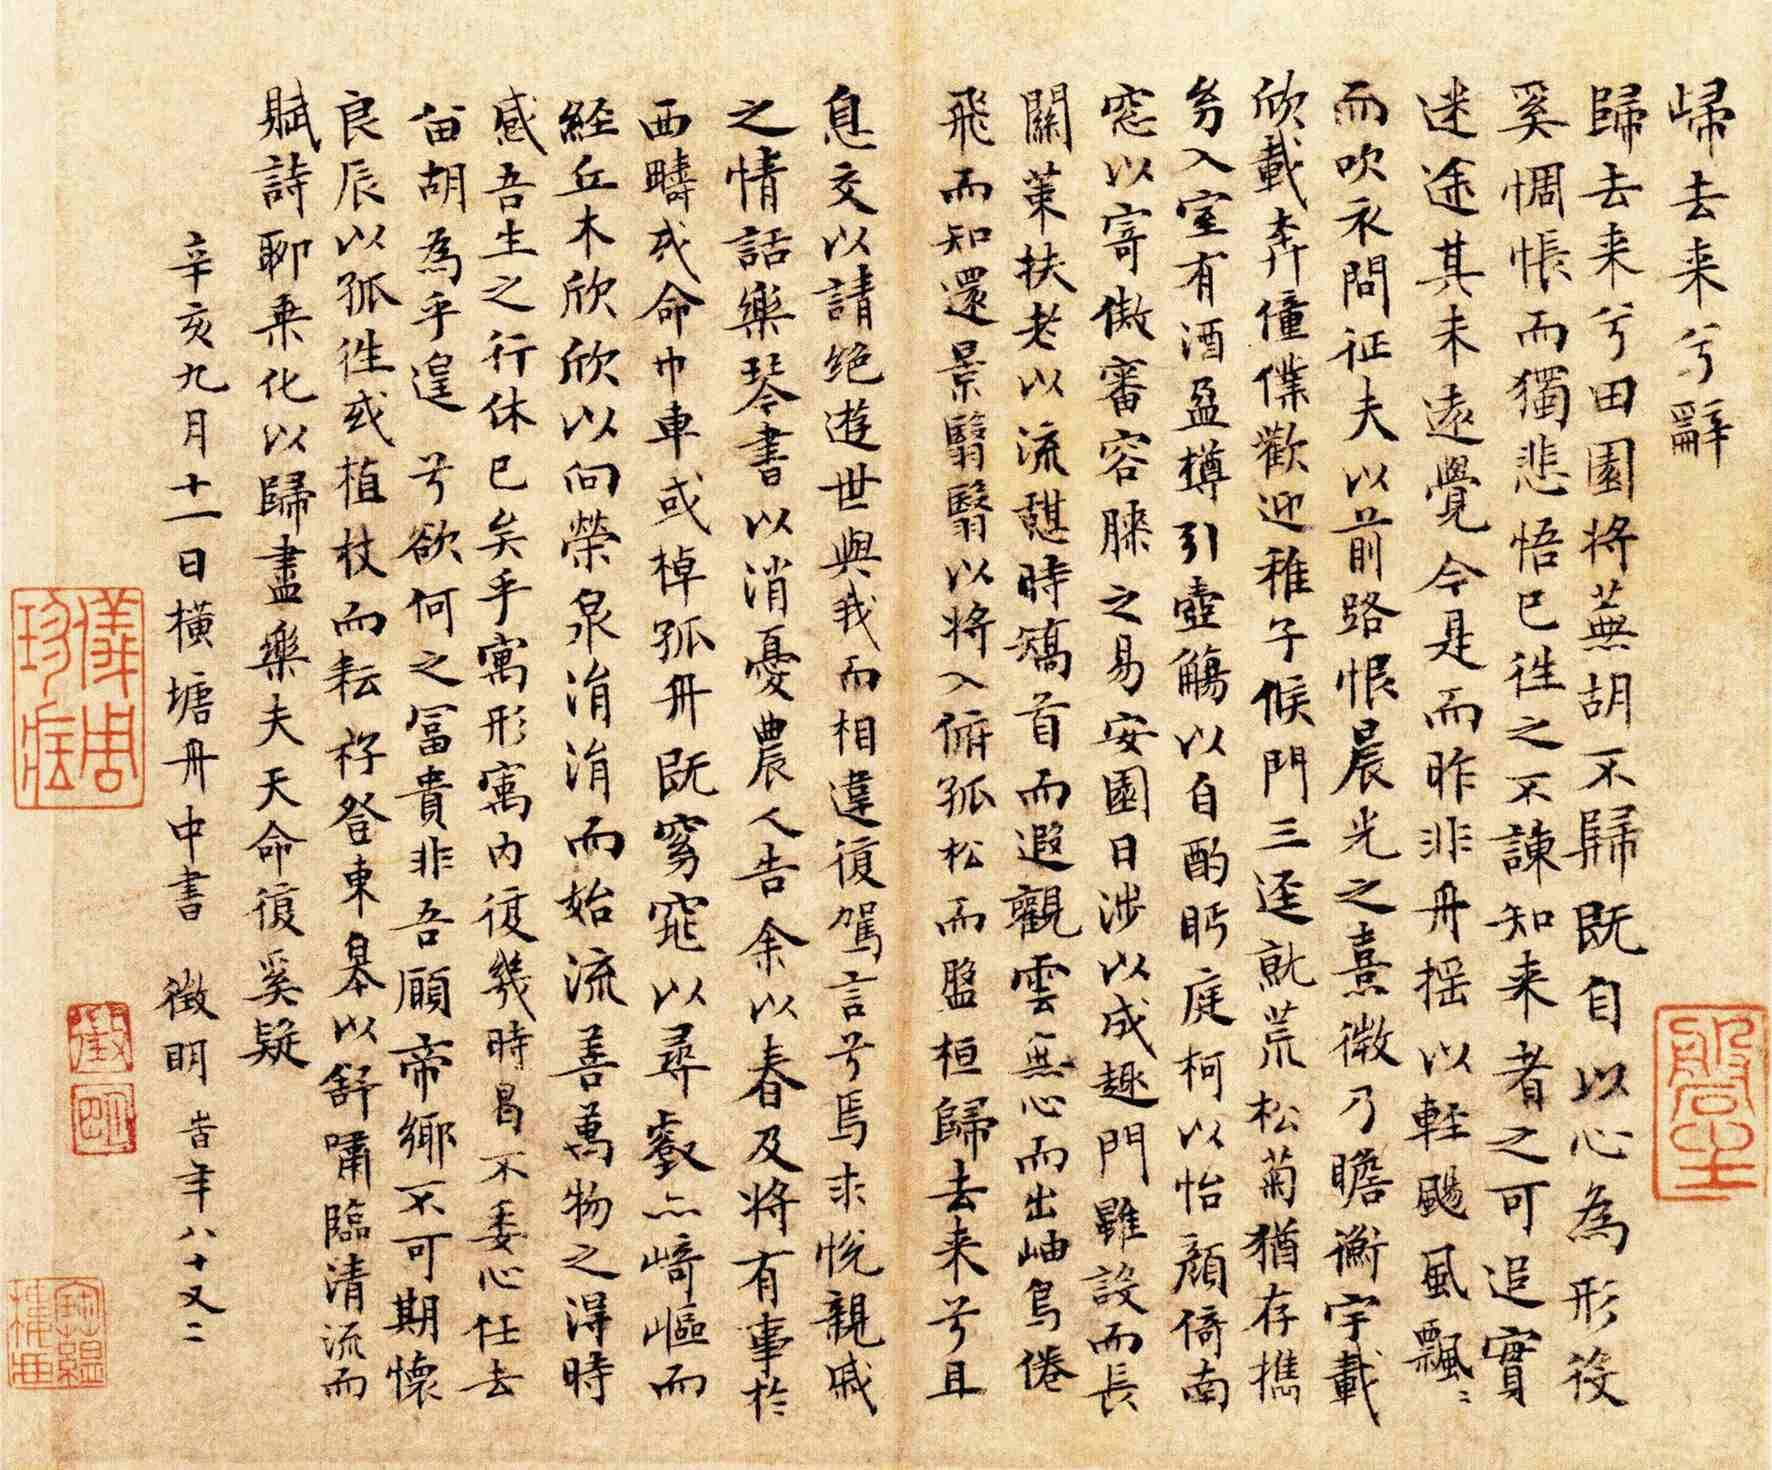 歸去来兮辭
歸去来兮田園将蕪胡不歸既自以心為形役
奚惆悵而獨悲悟已往之不諫知来者之可追實
迷途其未遠覺今是而昨非舟揺以軽颺風飄〻
而吹衣問征夫以前路恨晨光之熹微乃瞻衡宇載
欣載奔僮僕歡迎稚子候門三逕就荒松菊猶存携
幼入室有酒盈樽引壺觴以自酌眄庭柯以怡顏倚南
窓以寄傲審容膝之易安園日涉以成趣門雖設而長
關策扶老以流憩時矯首而遐觀雲無心而出岫鳥倦
飛而知還景翳翳以将入俯孤松而盤桓歸去来兮且
息交以請絶遊世與我而相違復駕言兮焉求悅親戚
之情話樂琴書以消憂農人告余以春及将有事於
西疇或命巾車或棹孤舟既窈窕以尋壑亦崎嶇而
経丘木欣欣以向榮泉涓涓而始流善萬物之得時
感吾生之行休已矣乎寓形寓内復幾時曷不委心任去
留胡為乎遑兮欲何之富貴非吾願帝鄉不可期懷
良辰以孤往或植杖而耘耔登東皋以舒嘯臨清流而
賦詩聊乗化以歸盡樂夫天命復奚疑
辛亥九月十一日橫塘舟中書 徵明 時年八十又二
徵
明
儀周珍藏